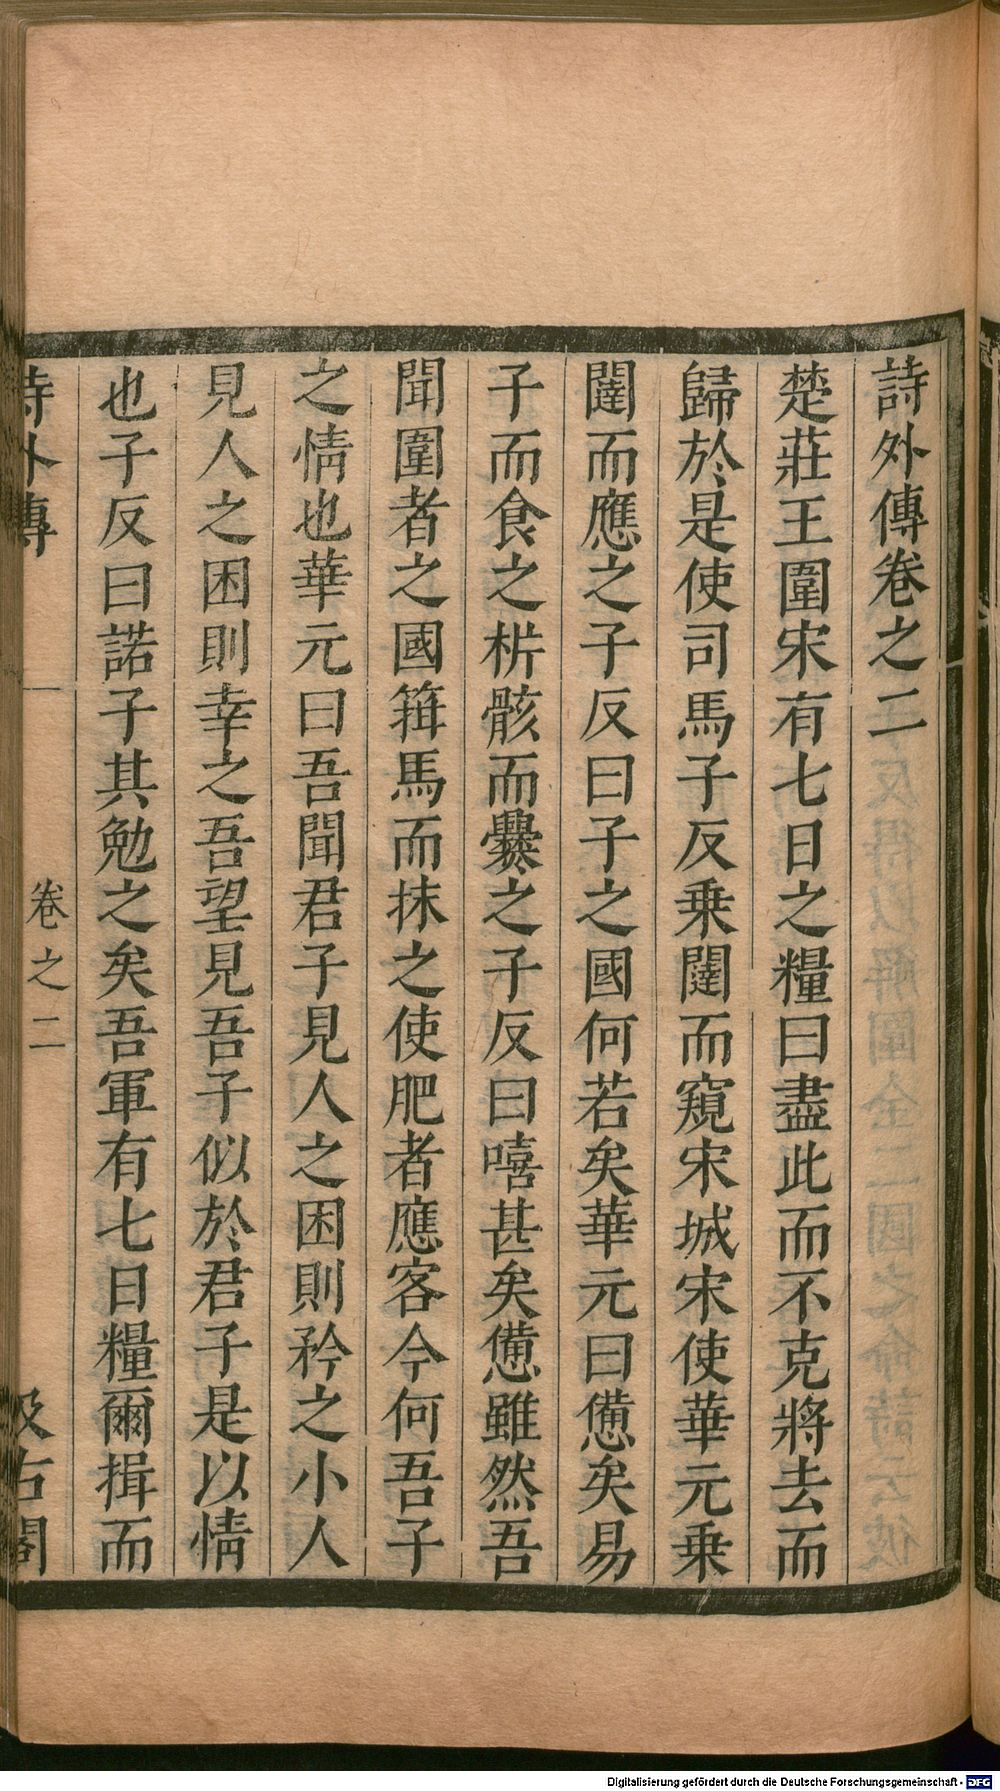 詩外傳卷之二
楚莊王圍宋有七日之糧曰盡此而不克將去而
歸於是使司馬子反乗闉而窺宋城宋使華元乗
闉而應之子反曰子之國何若矣華元曰憊矣易
子而食之析骸而爨之子反曰嘻甚矣憊雖然吾
聞圍者之國箝馬而抹之使肥者應客今何吾子
之情也華元曰吾聞君子見人之困則矜之小人
見人之困則幸之吾望見吾子似於君子是以情
也子反曰諾子其勉之矣吾軍有七日糧爾揖而
詩外傳
卷之二
汲古閣
Digitalisierung gefördert durch die Deutsche Forschungsgemeinschaft - DFG